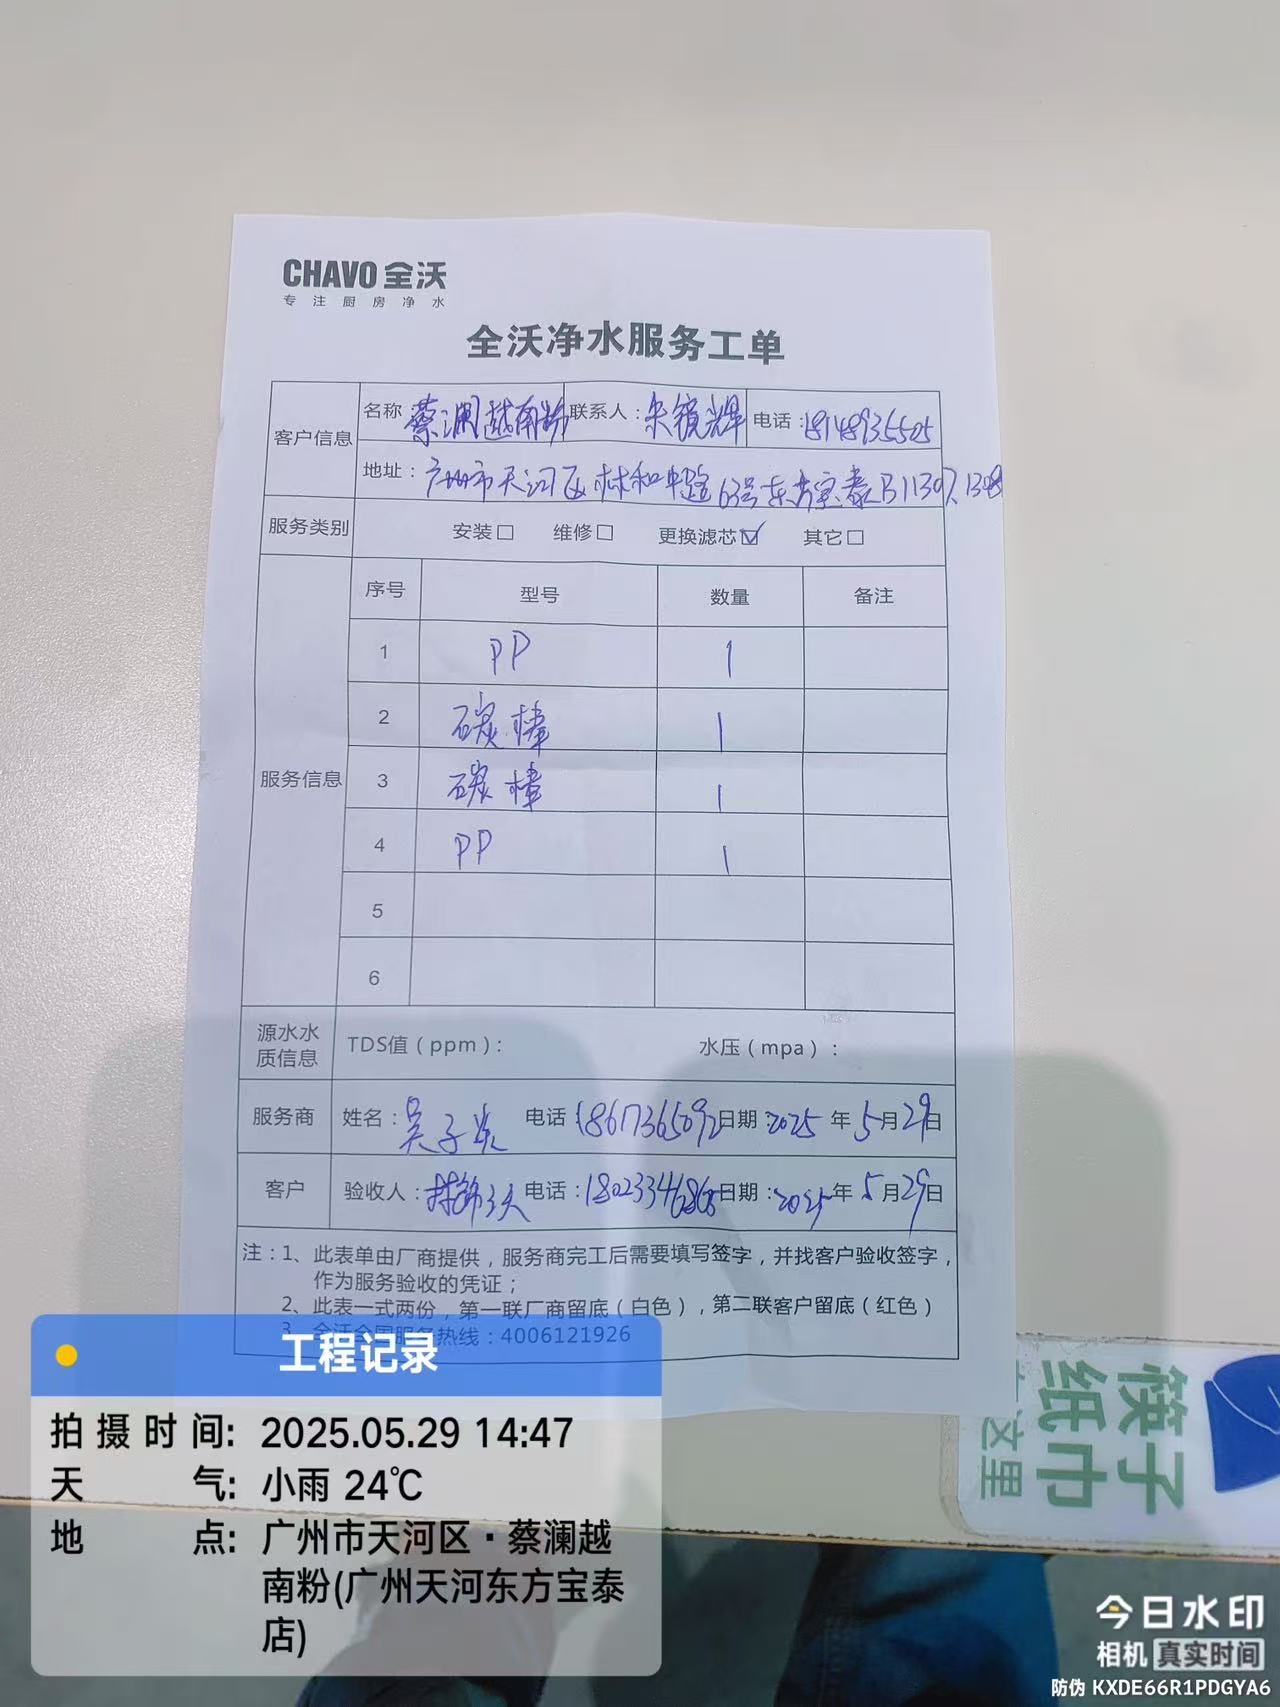 CHAVO 全沃
专注厨房净水
全沃净水服务工单
客户信息 名称：蔡澜越南粉 联系人：朱镜辉 电话：18148935505
地址：广州市天河区林和中路63号东方宝泰B1130、1308
服务类别 安装□ 维修□ 更换滤芯☑ 其它□
服务信息 序号 型号 数量 备注
1 PP 1
2 碳棒 1
3 碳棒 1
4 PP 1
5
6
源水水质信息 TDS值（ppm）： 水压（mpa）：
服务商 姓名：吴子 电话：18617365092 日期：2025年5月29日
客户 验收人： 电话： 日期：2025年5月29日
注：1、此表单由厂商提供，服务商完工后需要填写签字，并找客户验收签字，
作为服务验收的凭证；
2、此表一式两份，第一联厂商留底（白色），第二联客户留底（红色）
3、全沃全国服务热线：4006121926
工程记录
拍摄时间: 2025.05.29 14:47
天气: 小雨 24℃
地点: 广州市天河区·蔡澜越
南粉(广州天河东方宝泰
店)
筷子
纸巾
这里
今日水印
相机 真实时间
防伪 KXDE66R1PDGYA6